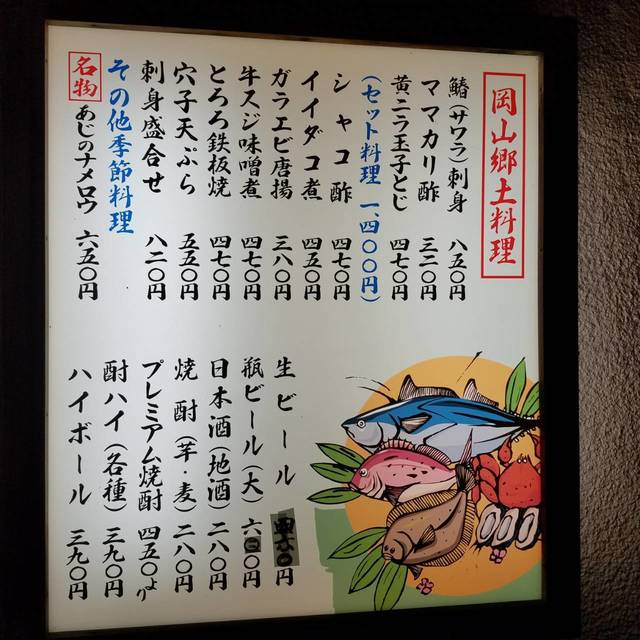 岡山郷土料理
鰆(サワラ)刺身 八五〇円
ママカリ酢 三二〇円
黄ニラ玉子とじ 四七〇円
(セット料理 一、四〇〇円)
シャコ酢 四七〇円
イイダコ煮 四五〇円
ガラエビ唐揚 三八〇円
牛スジ味噌煮 四七〇円
とろろ鉄板焼 四七〇円
穴子天ぷら 五五〇円
刺身盛合せ 八二〇円
その他季節料理
名物 あじのナメロウ 六五〇円
生ビール 円
瓶ビール(大) 六〇円
日本酒(地酒) 二八〇円
焼酎(芋・麦) 二八〇円
プレミアム焼酎 四五〇より
酎ハイ(各種) 三九〇円
ハイボール 三九〇円